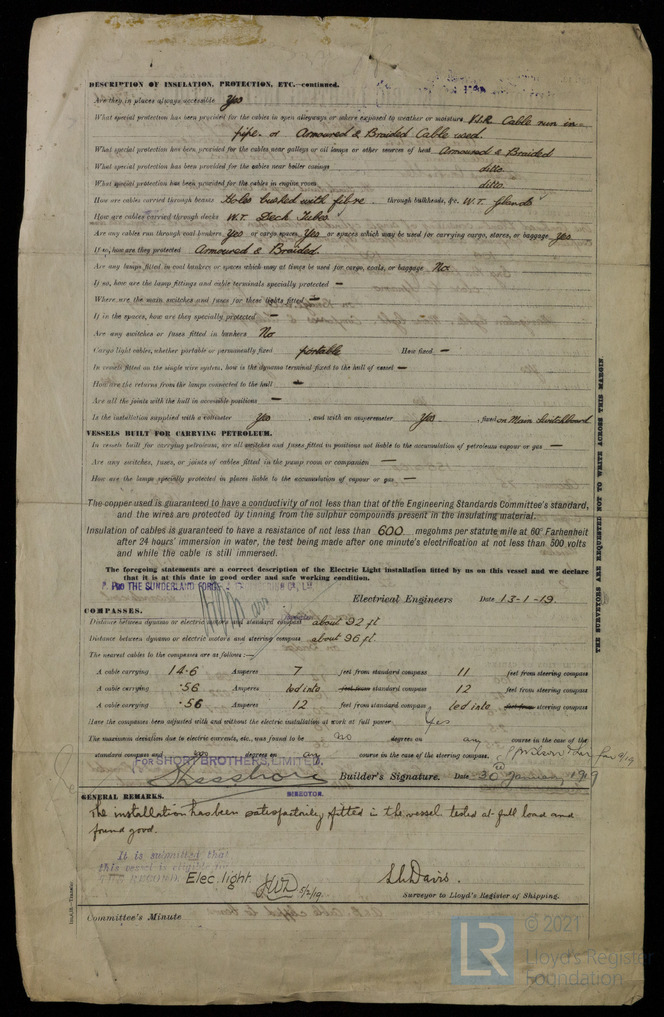 DESCRIPTION OF INSULATION, PROTECTION, ETC.—continued.
Are they in places always accessible Yes
What special protection has been provided for the cables in open alleyways or where exposed to weather or moisture V.I.R. Cable run in
pipe or Armoured & Braided Cable used.
What special protection has been provided for the cables near galleys or oil lamps or other sources of heat Armoured & Braided
What special protection has been provided for the cables near boiler casings ditto
What special protection has been provided for the cables in engine room ditto
How are cables carried through beams Holes bushed with fibre through bulkheads, &c. W.T. Glands
How are cables carried through decks W.T. Deck Tubes
Are any cables run through coal bunkers Yes or cargo spaces Yes or spaces which may be used for carrying cargo, stores, or baggage Yes
If so, how are they protected Armoured & Braided.
Are any lamps fitted in coal bunkers or spaces which may at times be used for cargo, coals, or baggage No
If so, how are the lamp fittings and cable terminals specially protected —
Where are the main switches and fuses for these lights fitted —
If in the spaces, how are they specially protected —
Are any switches or fuses fitted in bunkers No
Cargo light cables, whether portable or permanently fixed portable How fixed —
In vessels fitted on the single wire system, how is the dynamo terminal fixed to the hull of vessel —
How are the returns from the lamps connected to the hull —
Are all the joints with the hull in accessible positions —
Is the installation supplied with a voltmeter Yes , and with an amperemeter Yes , fixed on Main Switchboard
VESSELS BUILT FOR CARRYING PETROLEUM.
In vessels built for carrying petroleum, are all switches and fuses fitted in positions not liable to the accumulation of petroleum vapour or gas —
Are any switches, fuses, or joints of cables fitted in the pump room or companion —
How are the lamps specially protected in places liable to the accumulation of vapour or gas —
The copper used is guaranteed to have a conductivity of not less than that of the Engineering Standards Committee's standard,
and the wires are protected by tinning from the sulphur compounds present in the insulating material.
Insulation of cables is guaranteed to have a resistance of not less than 600 megohms per statute mile at 60° Farhenheit
after 24 hours' immersion in water, the test being made after one minute's electrification at not less than 500 volts
and while the cable is still immersed.
The foregoing statements are a correct description of the Electric Light installation fitted by us on this vessel and we declare
that it is at this date in good order and safe working condition.
THE SUNDERLAND FORGE
Electrical Engineers Date 13-1-19.
COMPASSES.
Distance between dynamo or electric motors and standard compass about 92 ft
Distance between dynamo or electric motors and steering compass about 96 ft.
The nearest cables to the compasses are as follows:—
A cable carrying 14.6 Amperes 7 feet from standard compass 11 feet from steering compass
A cable carrying .56 Amperes led into feet from standard compass 12 feet from steering compass
A cable carrying .56 Amperes 12 feet from standard compass led into feet from steering compass
Have the compasses been adjusted with and without the electric installation at work at full power Yes
The maximum deviation due to electric currents, etc., was found to be no degrees on any course in the case of the
standard compass and zero degrees on any course in the case of the steering compass.
FOR SHORT BROTHERS, LIMITED.
Builder's Signature. Date 30th January 1919
DIRECTOR.
GENERAL REMARKS.
The installation has been satisfactorily fitted in the vessel tested at full load and
found good.
It is submitted that
this vessel is eligible for
THE RECORD. Elec. light. 5/2/19.
Surveyor to Lloyd's Register of Shipping.
Committee's Minute
THE SURVEYORS ARE REQUESTED NOT TO WRITE ACROSS THIS MARGIN.
LR
© 2021
Lloyd's Register
Foundation